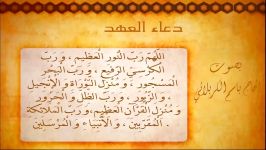 دعاء العهد
اللّهُمَّ رَبَّ النُّورِ الْعَظيمِ ، وَ رَبَّ
الْكُرْسِيِّ الرَّفيعِ ، وَ رَبَّ الْبَحْرِ
الْمَسْجُورِ ، وَ مُنْزِلَ التَّوْراةِ وَ الْإِنْجيلِ
وَ الزَّبُورِ ، وَ رَبَّ الظِّلِّ وَ الْحَرُورِ
وَ مُنْزِلَ الْقُرْآنِ الْعَظيمِ ، وَ رَبَّ الْمَلائِكَةِ
الْمُقَرَّبينَ ، وَ الْأَنْبِياءِ وَ الْمُرْسَلينَ .
بصوت
باسم الكربلائي